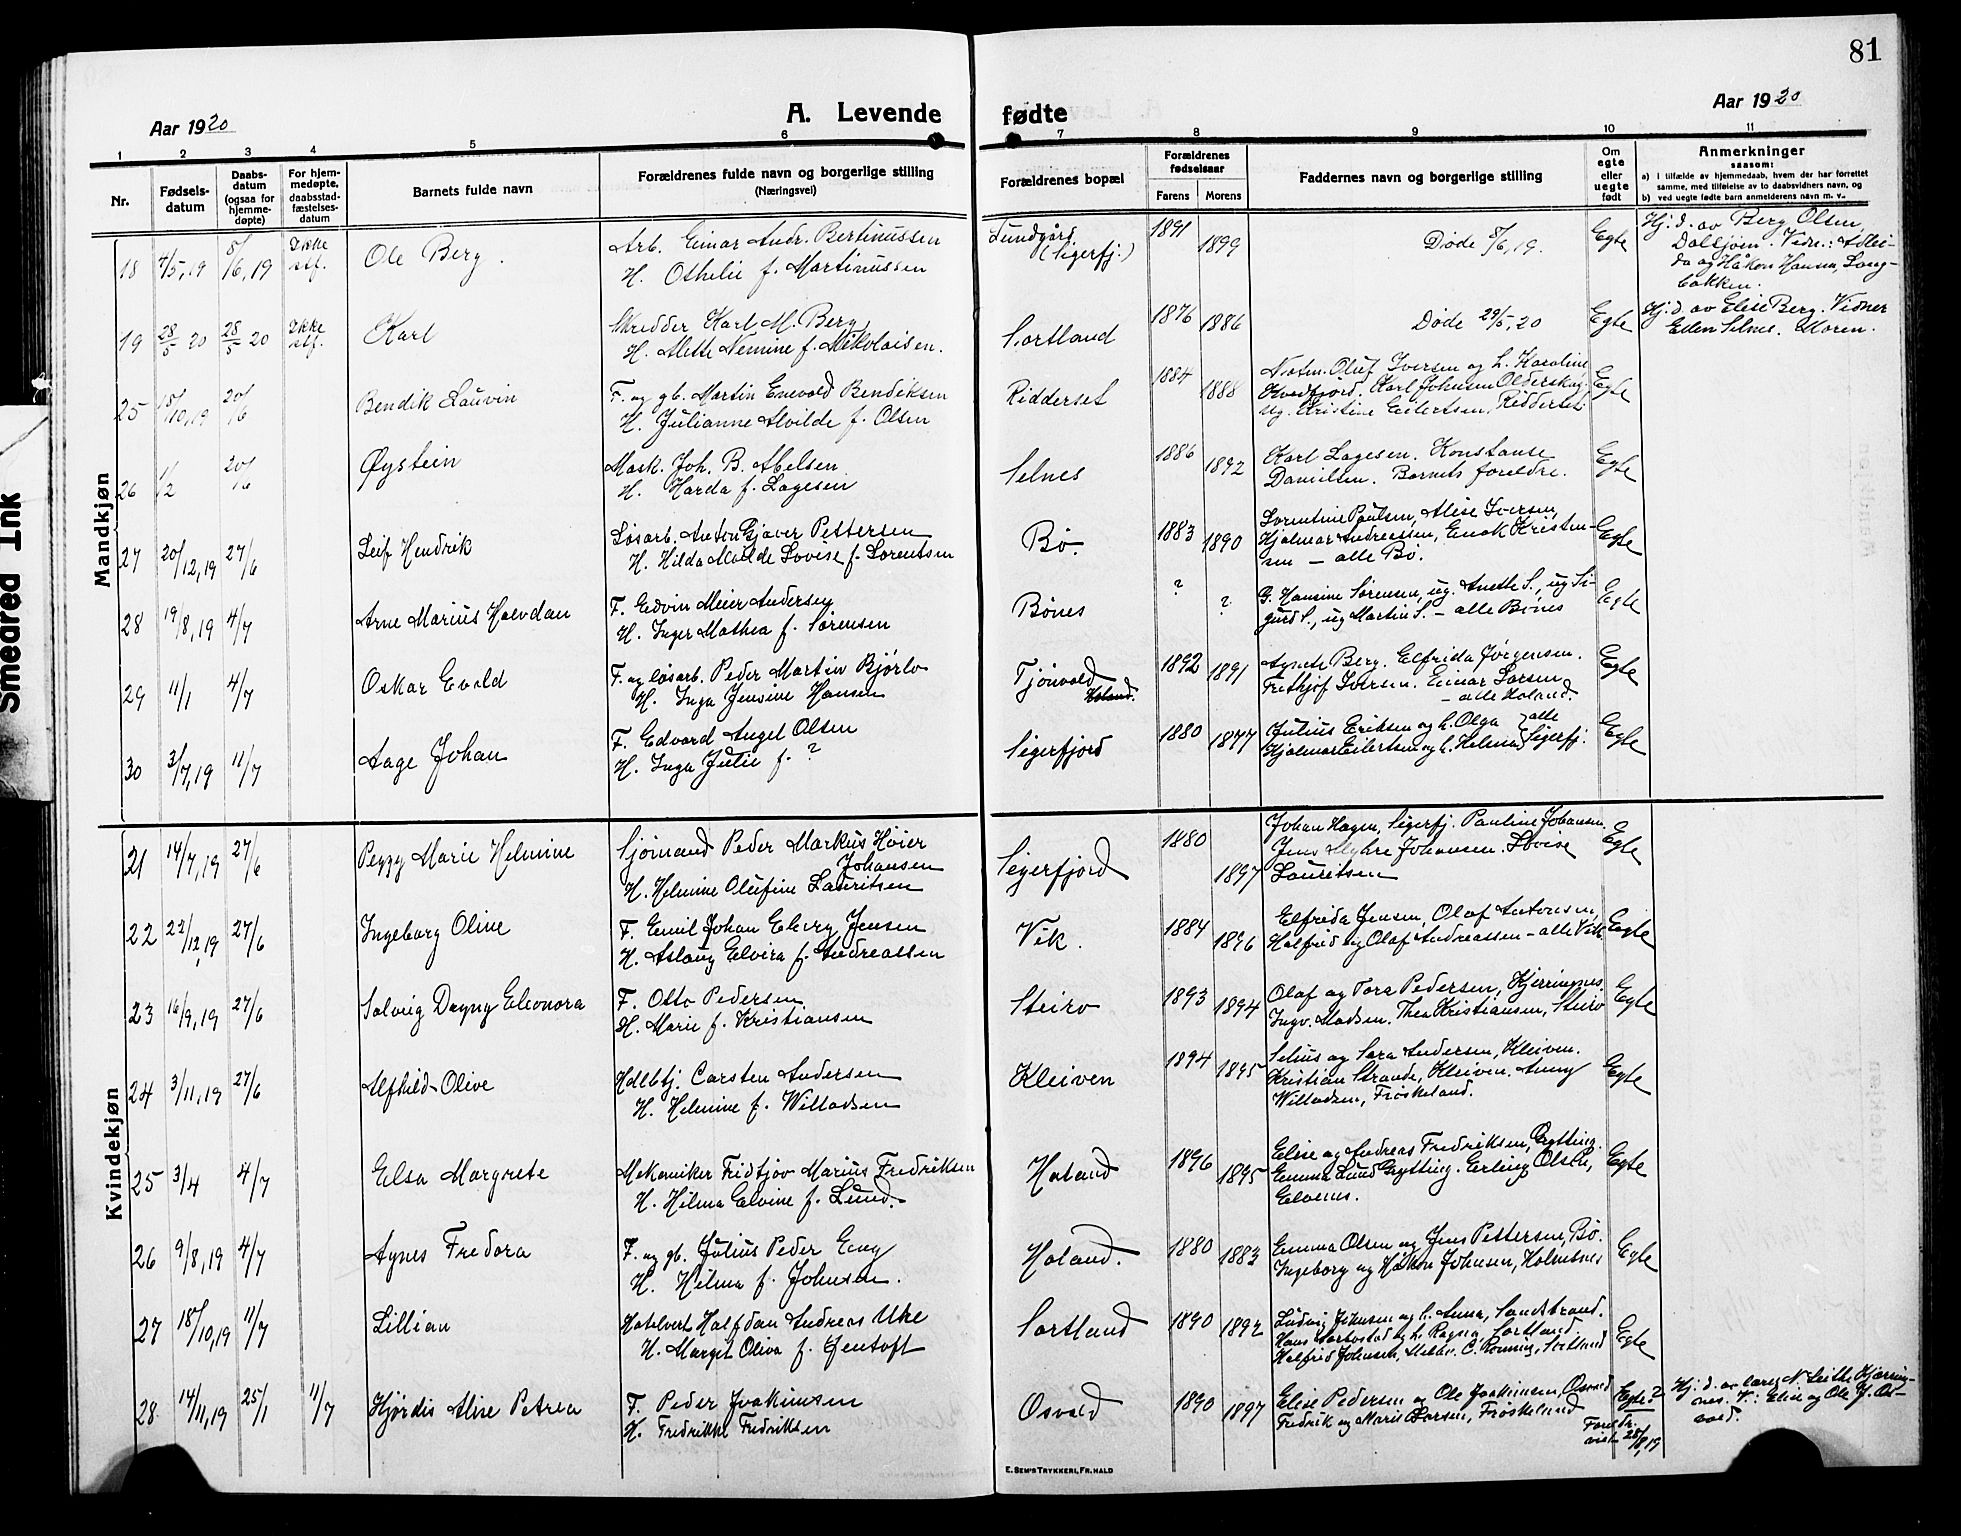 81
Aar 1920
A. Levende
fødte
Aar 1920
1 2 3 4 5 6 7 8 9 10 11
Nr.
Fødsels-
datum
Daabs-
datum
(ogsaa for
hjemme-
døpte)
For hjem-
medøpte,
daabsstad-
fæstelses-
datum
Barnets fulde navn
Forældrenes fulde navn og borgerlige stilling
(Næringsvei)
Forældrenes bopæl
Forældrenes
fødselsaar
Farens Morens
Faddernes navn og borgerlige stilling
Om
egte
eller
uegte
født
Anmerkninger
saasom:
a) i tilfælde av hjemmedaab, hvem der har forrettet
samme, med tilføielse av to daabsvidners navn, og
b) ved uegte fødte barn anmelderens navn m. v.
Smeared Ink
Mandkjøn
18 4/5,19 8/6,19 Ikke stf. Ole Berg.
Arb. Einar Andr. Bertinussen
H. Othelie f. Martinussen
Lundgård
(Sigerfj.)
1891 1899
Døde 8/6,19.
Egte
Hj. d. av Berg Olsen,
da og Håkon Hansen, Lang-
bakken.
19 28/5 20 28/5 20 Ikke stf. Karl
Skredder Karl M. Berg
H. Mette Nemine f. Nikolaisen.
Sortland
1876 1886
Døde 29/5,20
Egte
Hj. d. av Elise Berg. Vidner
Ellen Selnes. Moren.
25 15/10,19 20/6 Bendik Lauvin
F. og gb. Martin Enevold Bendiksen
H. Julianne Alvilde f. Olsen
Ridderset
1884 1888
Notm. Oluf Iversen og h. Karoline
Kvedfjord. Karl Johnsen Olderskog
ug. Kristine Eilertsen, Ridderset.
Egte
26 1/2 20/6 Øystein
Mask. Joh. B. Abelsen
H. Harda f. Lagesen
Selnes
1886 1892
Karl Lagesen. Konstanse
Danielsen. Barnets foreldre.
Egte
27 20/12,19 27/6 Leif Hendrik
Løsarb. Anton Gjæver Pettersen
H. Hilda Alvilde Lovise f. Lorentsen
Bø.
1883 1890
Lorentine Paulsen, Alise Iversen,
Hjalmar Andreassen, Enok Kristen-
sen — alle Bø.
Egte
28 19/8,19 4/7 Arne Marius Halvdan
F. Edvin Meier Andersen
H. Inger Mathea f. Sørensen
Bønes
? ?
G. Hansine Sørensen, ug. Anette S., ug Si-
gurd S., ug Martin S. – alle Bønes
Egte
29 11/1 4/7 Oskar Evald
F. og løsarb. Peder Martin Bjørlo
H. Inga Jensine Hansen
Tjønvold
Holand.
1892 1891
Agnete Berg. Elfrida Jørgensen.
Frithjof Iversen. Einar Larsen
– alle Holand.
Egte
30 3/7,19 11/7 Aage Johan
F. Edvard Angel Olsen
H. Inga Julie f. ?
Sigerfjord
1880 1877
Julius Eriksen og h. Olga } alle
Hjalmar Eilertsen og h. Helma } Sigerfj.
Egte
Kvindekjøn
21 14/7,19 27/6 Peggy Marie Helmine
Sjømand Peder Markus Høier
Johansen
H. Helmine Olufine Lauritsen
Sigerfjord
1880 1897
Johan Hagen, Sigerfj. Pauline Johansen.
Jens Myhre Johansen. Lovise
Lauritsen
Egte
22 22/12,19 27/6 Ingeborg Oline
F. Emil Johan Eberg Jensen
H. Aslaug Elvira f. Andreassen
Vik.
1884 1896
Elfrida Jensen, Olaf Antonsen,
Halfrid og Olaf Andreassen – alle Vik
Egte
23 16/9,19 27/6 Solveig Dagny Eleonora
F. Otto Pedersen
H. Marie f. Kristiansen
Steiro
1893 1894
Olaf og Tora Pedersen, Kjerringnes.
Ingv. Madsen. Thea Kristiansen, Steiro
Egte
24 3/11,19 27/6 Alfhild Olive
Hdlbtj. Carsten Andersen
H. Helmine f. Willadsen
Kleiven
1894 1895
Selius og Sara Andersen, Kleiven.
Kristian Strande, Kleiven. Anny
Willadsen, Frøskeland.
Egte
25 3/4 4/7 Elsa Margrete
Mekaniker Fridtjov Marius Fredriksen
H. Hilma Elvine f. Lund.
Holand
1896 1895
Elise og Andreas Fredriksen, Grytting.
Emma Lund Grytting. Erling Olsen,
Elvenes.
Egte
26 9/8,19 4/7 Agnes Fredora
F. og gb. Julius Peder Eng
H. Hilma f. Johnsen.
Holand.
1880 1883
Emma Olsen og Jens Pettersen, Bø.
Ingeborg og Håkon Johnsen, Holmsnes
Egte
27 18/10,19 11/7 Lillian
Hotelvert Halfdan Andreas Uke
H. Margit Oliva f. Jentoft
Sortland
1890 1892
Ludvig Johnsen og h. Anna, Sandstrand.
h. Ragna, Sortland
Halfrid Johnsen, C. Rønning, Sortland
Egte
28 14/11,19 25/1 11/7 Hjørdis Alise Petrea
F. Peder Joakimsen
H. Fredrikke Fredriksen
Osvold
1890 1897
Elise Pedersen og Ole Joakimsen, Osvold
Fredrik og Marie Larsen, Frøskeland
Egte?
Foreldr.
viet 28/8,19
Hj. d. av N. Kjerring-
nes. V.: Elise og Ole J. Os-
vold.
E. SEM'S TRYKKERI, FR.HALD